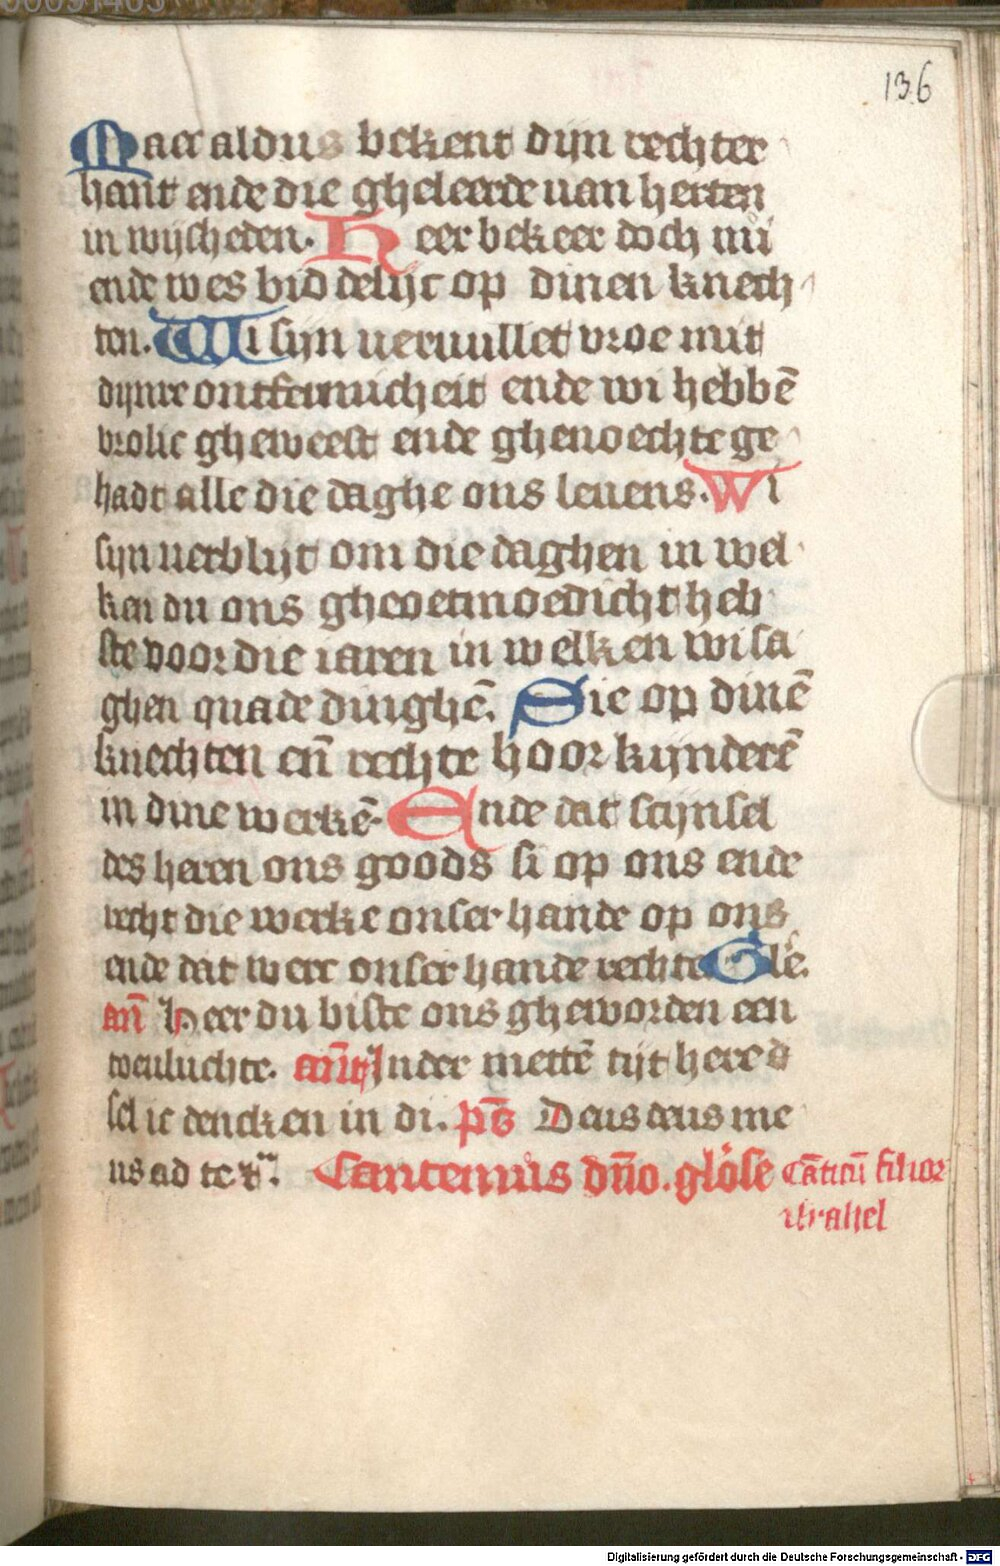 136
Maec aldus bekent dijn rechter
hant ende die gheleerde uan herten
in wijsheden. Heer bekeer doch nu
ende wes biddelijc op dinen knech
ten. Wi sijn ueruullet vroe mit
dijnre ontfermicheit ende wi hebbē
vrolic gheweest ende ghenoechte ge
hadt alle die daghe ons leuens. Wi
sijn uerblijt om die daghen in wel
ken du ons gheoetmoedicht heb
ste voor die iaren in welken wi sa
ghen quade dinghē. Sie op dinē
knechten en̄ rechte hoor kijnderē
in dine werkē. Ende dat scijnsel
des heren ons goods si op ons ende
recht die werke onser hande op ons
ende dat werc onser hande rechte Glē.
an̄ Heer du biste ons gheworden een
toeuluchte. In der mettē tijt here
sel ic dencken in di. Deus deus me
us ad te
Cantemus dn̄o. glose Cāticū filior
israhel
Digitalisierung gefördert durch die Deutsche Forschungsgemeinschaft - DFG